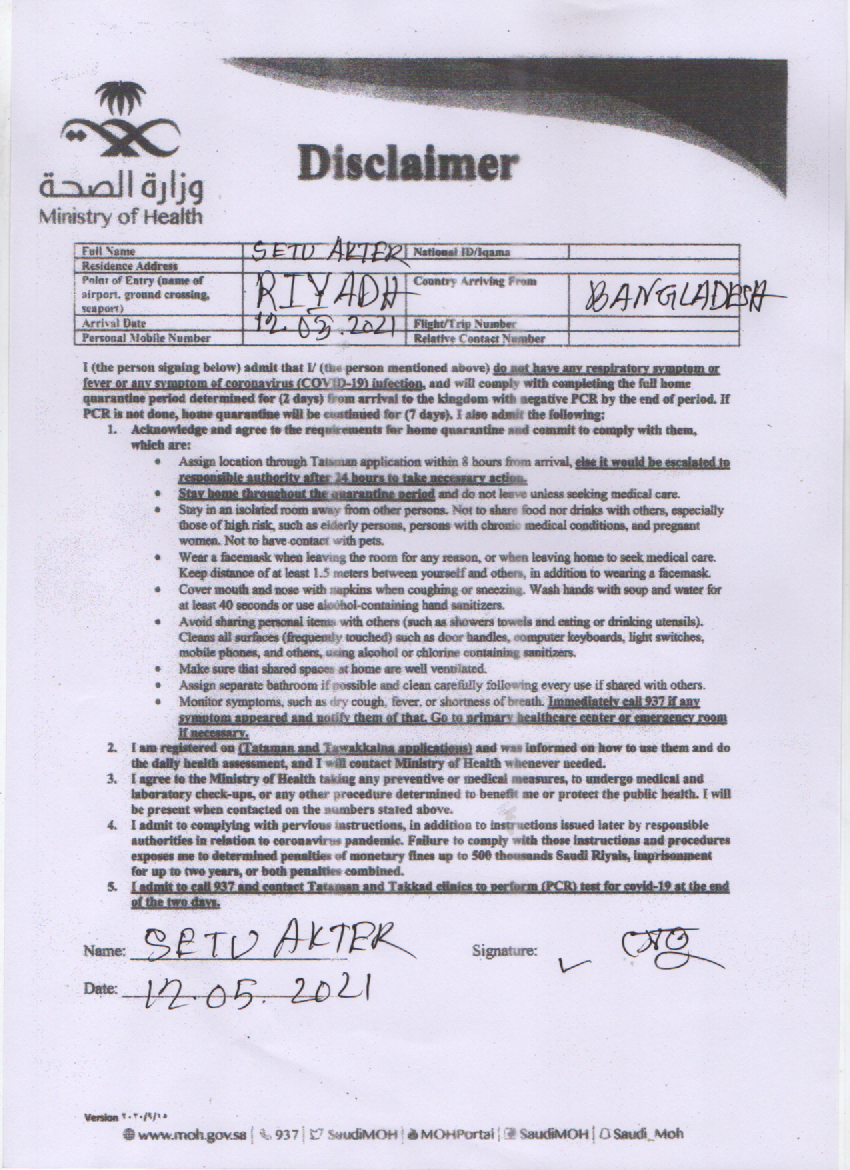 Disclaimer
وزارة الصحة
Ministry of Health
Full Name SETU AKTER National ID/Iqama
Residence Address
Point of Entry (name of airport, ground crossing, seaport) RIYADH Country Arriving From BANGLADESH
Arrival Date 12.05.2021 Flight/Trip Number
Personal Mobile Number Relative Contact Number
I (the person signing below) admit that I/ (the person mentioned above) do not have any respiratory symptom or
fever or any symptom of coronavirus (COVID-19) infection, and will comply with completing the full home
quarantine period determined for (2 days) from arrival to the kingdom with negative PCR by the end of period. If
PCR is not done, home quarantine will be continued for (7 days). I also admit the following:
1. Acknowledge and agree to the requirements for home quarantine and commit to comply with them,
which are:
• Assign location through Tataman application within 8 hours from arrival, else it would be escalated to
responsible authority after 24 hours to take necessary action.
• Stay home throughout the quarantine period and do not leave unless seeking medical care.
• Stay in an isolated room away from other persons. Not to share food nor drinks with others, especially
those of high risk, such as elderly persons, persons with chronic medical conditions, and pregnant
women. Not to have contact with pets.
• Wear a facemask when leaving the room for any reason, or when leaving home to seek medical care.
Keep distance of at least 1.5 meters between yourself and others, in addition to wearing a facemask.
• Cover mouth and nose with napkins when coughing or sneezing. Wash hands with soup and water for
at least 40 seconds or use alcohol-containing hand sanitizers.
• Avoid sharing personal items with others (such as showers towels and eating or drinking utensils).
Cleans all surfaces (frequently touched) such as door handles, computer keyboards, light switches,
mobile phones, and others, using alcohol or chlorine containing sanitizers.
• Make sure that shared spaces at home are well ventilated.
• Assign separate bathroom if possible and clean carefully following every use if shared with others.
• Monitor symptoms, such as dry cough, fever, or shortness of breath. Immediately call 937 if any
symptom appeared and notify them of that. Go to primary healthcare center or emergency room
if necessary.
2. I am registered on (Tataman and Tawakkalna applications) and was informed on how to use them and do
the daily health assessment, and I will contact Ministry of Health whenever needed.
3. I agree to the Ministry of Health taking any preventive or medical measures, to undergo medical and
laboratory check-ups, or any other procedure determined to benefit me or protect the public health. I will
be present when contacted on the numbers stated above.
4. I admit to complying with pervious instructions, in addition to instructions issued later by responsible
authorities in relation to coronavirus pandemic. Failure to comply with those instructions and procedures
exposes me to determined penalties of monetary fines up to 500 thousands Saudi Riyals, imprisonment
for up to two years, or both penalties combined.
5. I admit to call 937 and contact Tataman and Takkad clinics to perform (PCR) test for covid-19 at the end
of the two days.
Name: SETU AKTER Signature:
Date: 12.05.2021
Version ٢٠٢٠/٩/١٥
www.moh.gov.sa | 937 | SaudiMOH | MOHPortal | SaudiMOH | Saudi_Moh